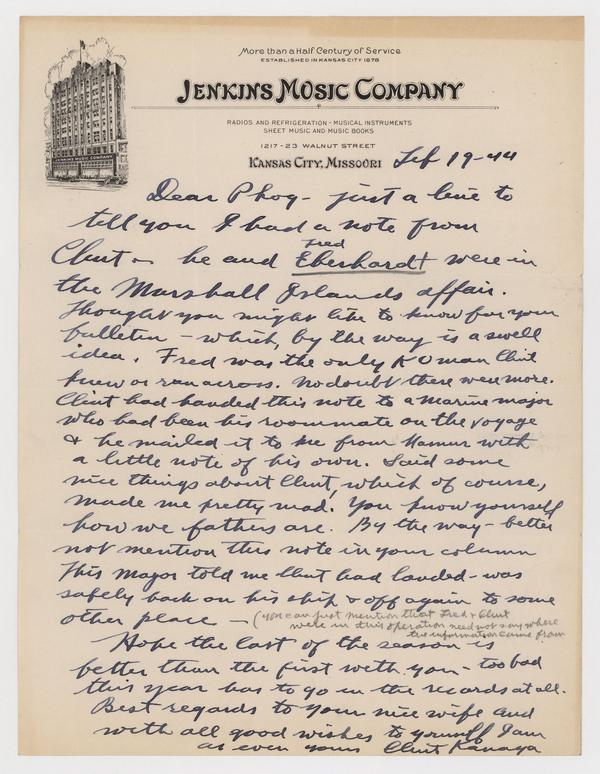 More than a Half Century of Service
ESTABLISHED IN KANSAS CITY 1878
JENKINS MUSIC COMPANY
JENKINS MUSIC COMPANY
RADIOS AND REFRIGERATION - MUSICAL INSTRUMENTS
SHEET MUSIC AND MUSIC BOOKS
1217-23 WALNUT STREET
KANSAS CITY, MISSOURI Feb 19-44
Dear Phog - just a line to
tell you I had a note from
Clint - he and Fred Eberhardt were in
the Marshall Islands affair.
Thought you might like to know for your
bulletin - which, by the way is a swell
idea. Fred was the only K U man Clint
knew or ran across. No doubt there were more.
Clint had handed this note to a Marine major
who had been his roommate on the voyage
& he mailed it to me from Namur with
a little note of his own. Said some
nice things about Clint, which of course,
made me pretty mad. You know yourself
how we fathers are. By the way - better
not mention this note in your column
This Major told me Clint had landed - was
safely back on his ship & off again to some
other place - (you can just mention that Fred & Clint
were in this operation need not say where
the information came from
Hope the last of the season is
better than the first with you - too bad
this year has to go in the records at all.
Best regards to your nice wife and
with all good wishes to yourself I am
as ever yours Clint Kanaga